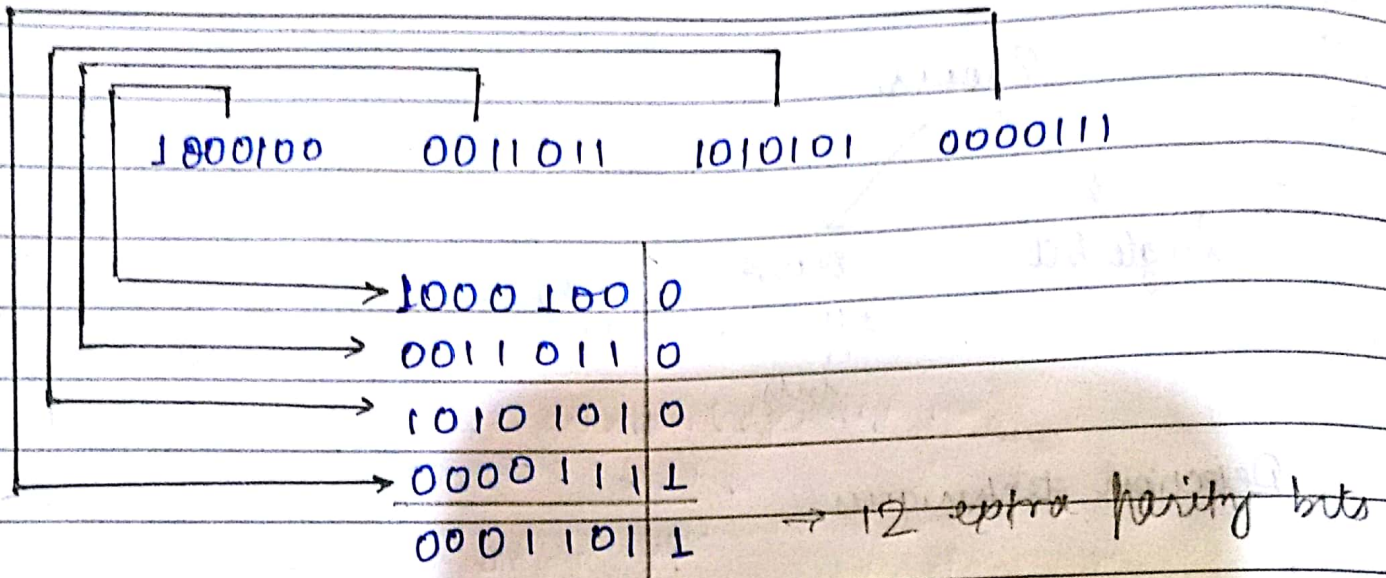 1000100 0011011 1010101 0000111
1000100 0
0011011 0
1010101 0
0000111 1
0001101 1
parity bits